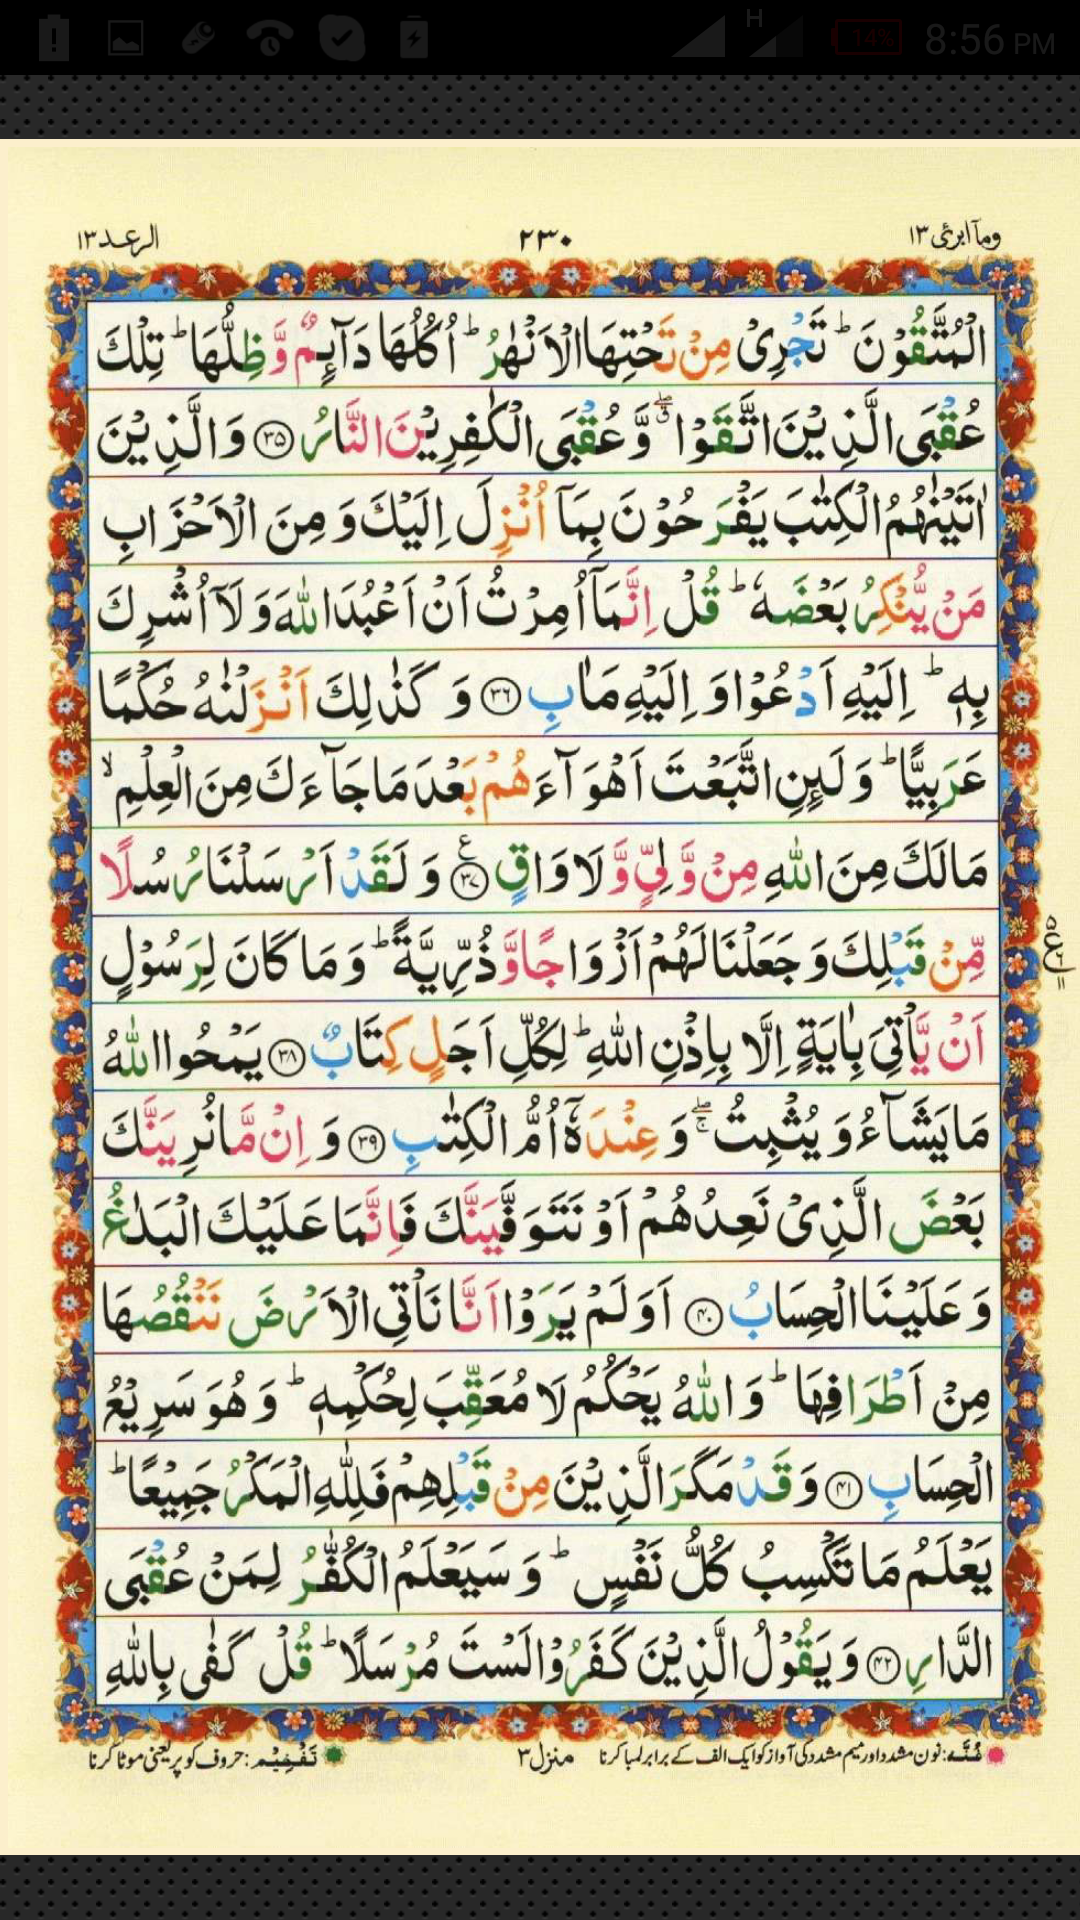 H 14% 8:56 PM
ومآ ابرئ ١٣ ٢٣٠ الرعد ١٣
الْمُتَّقُوْنَ ؕ تَجْرِیْ مِنْ تَحْتِهَا الْاَنْهٰرُ ؕ اُكُلُهَا دَآىِٕمٌ وَّظِلُّهَا ؕ تِلْكَ
عُقْبَی الَّذِیْنَ اتَّقَوْا ۖۗ وَّعُقْبَی الْكٰفِرِیْنَ النَّارُ ﴿۳۵﴾ وَالَّذِیْنَ
اٰتَیْنٰهُمُ الْكِتٰبَ یَفْرَحُوْنَ بِمَاۤ اُنْزِلَ اِلَیْكَ وَ مِنَ الْاَحْزَابِ
مَنْ یُّنْكِرُ بَعْضَهٗ ؕ قُلْ اِنَّمَاۤ اُمِرْتُ اَنْ اَعْبُدَ اللّٰهَ وَ لَاۤ اُشْرِكَ
بِهٖ ؕ اِلَیْهِ اَدْعُوْا وَ اِلَیْهِ مَاٰبِ ﴿۳۶﴾ وَ كَذٰلِكَ اَنْزَلْنٰهُ حُكْمًا
عَرَبِیًّا ؕ وَ لَىِٕنِ اتَّبَعْتَ اَهْوَآءَهُمْ بَعْدَ مَا جَآءَكَ مِنَ الْعِلْمِ ۙ
مَالَكَ مِنَ اللّٰهِ مِنْ وَّلِیٍّ وَّ لَا وَاقٍ ﴿۳۷﴾ ع وَ لَقَدْ اَرْسَلْنَا رُسُلًا
مِّنْ قَبْلِكَ وَ جَعَلْنَا لَهُمْ اَزْوَاجًا وَّ ذُرِّیَّةً ؕ وَ مَا كَانَ لِرَسُوْلٍ
اَنْ یَّاْتِیَ بِاٰیَةٍ اِلَّا بِاِذْنِ اللّٰهِ ؕ لِكُلِّ اَجَلٍ كِتَابٌ ﴿۳۸﴾ یَمْحُوا اللّٰهُ
مَا یَشَآءُ وَ یُثْبِتُ ۖۚ وَ عِنْدَهٗۤ اُمُّ الْكِتٰبِ ﴿۳۹﴾ وَ اِنْ مَّا نُرِیَنَّكَ
بَعْضَ الَّذِیْ نَعِدُهُمْ اَوْ نَتَوَفَّیَنَّكَ فَاِنَّمَا عَلَیْكَ الْبَلٰغُ
وَ عَلَیْنَا الْحِسَابُ ﴿۴۰﴾ اَوَ لَمْ یَرَوْا اَنَّا نَاْتِی الْاَرْضَ نَنْقُصُهَا
مِنْ اَطْرَافِهَا ؕ وَ اللّٰهُ یَحْكُمُ لَا مُعَقِّبَ لِحُكْمِهٖ ؕ وَ هُوَ سَرِیْعُ
الْحِسَابِ ﴿۴۱﴾ وَ قَدْ مَكَرَ الَّذِیْنَ مِنْ قَبْلِهِمْ فَلِلّٰهِ الْمَكْرُ جَمِیْعًا ؕ
یَعْلَمُ مَا تَكْسِبُ كُلُّ نَفْسٍ ؕ وَ سَیَعْلَمُ الْكُفّٰرُ لِمَنْ عُقْبَی
الدَّارِ ﴿۴۲﴾ وَ یَقُوْلُ الَّذِیْنَ كَفَرُوْا لَسْتَ مُرْسَلًا ؕ قُلْ كَفٰی بِاللّٰهِ
غُنَّه: نون مشدد اور میم مشدد کی آواز کو ایک الف کے برابر لمبا کرنا منزل ٣ تَفْخِیْم: حروف کو پر یعنی موٹا کرنا